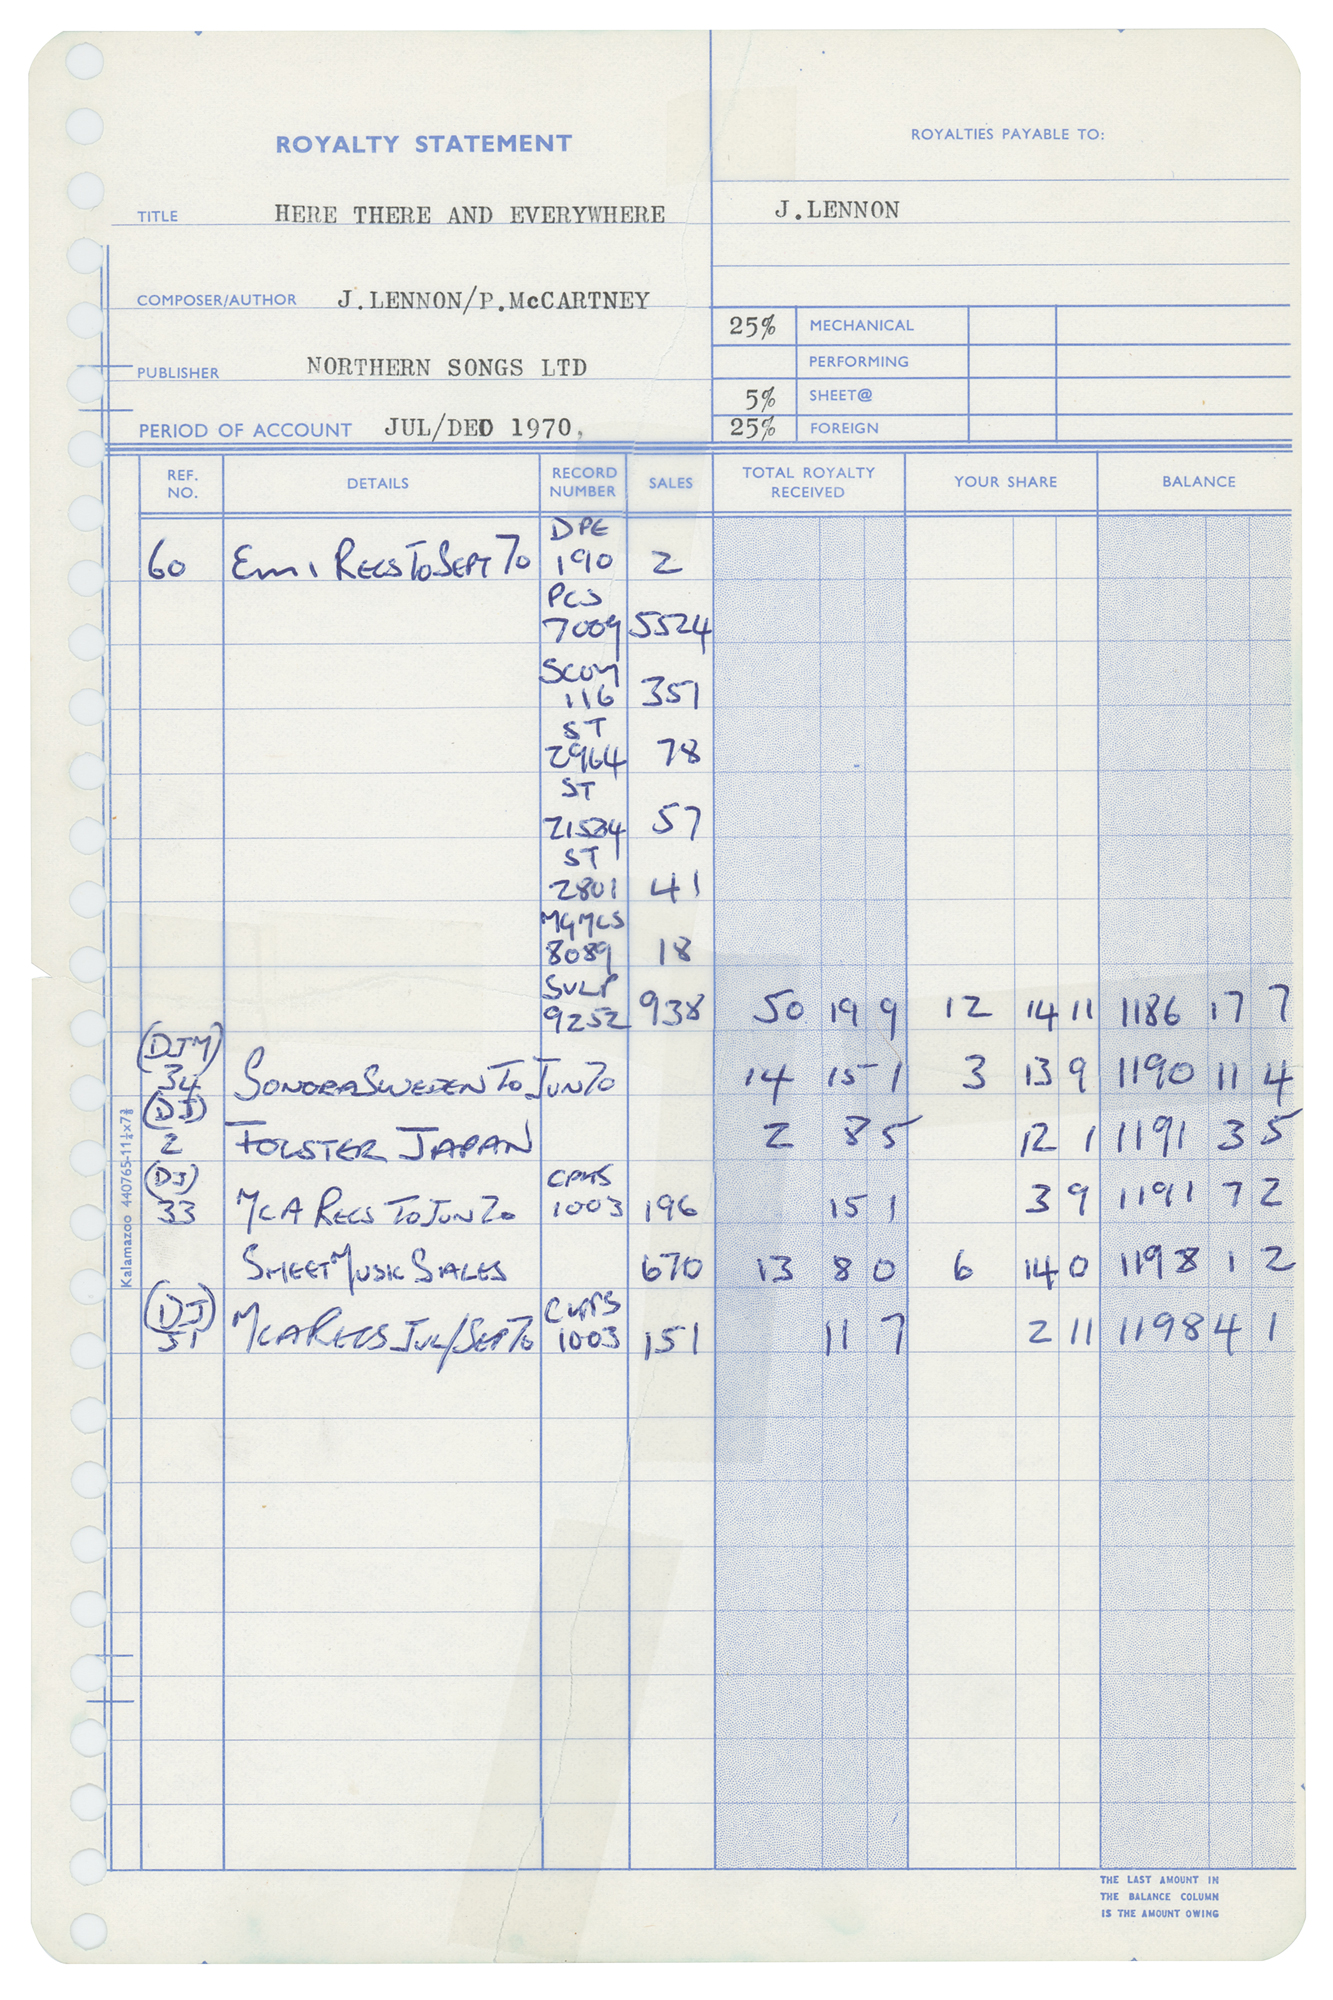 ROYALTY STATEMENT
ROYALTIES PAYABLE TO:
TITLE HERE THERE AND EVERYWHERE
J.LENNON
COMPOSER/AUTHOR J.LENNON/P.McCARTNEY
25% MECHANICAL
PERFORMING
PUBLISHER NORTHERN SONGS LTD
5% SHEET@
PERIOD OF ACCOUNT JUL/DEC 1970.
25% FOREIGN
REF. NO. DETAILS RECORD NUMBER SALES TOTAL ROYALTY RECEIVED YOUR SHARE BALANCE
DPE
60 Emi RECS TO SEPT 70 190 2
PCS
7009 5524
SCOM
116 351
ST
2964 78
ST
21534 57
ST
2801 41
MGMCS
8089 18
SULP
9252 938 50 19 9 12 14 11 1186 17 7
(DJM)
34 SONORA SWEDEN TO JUN 70 14 15 1 3 13 9 1190 11 4
(DJ)
2 FOLSTER JAPAN 2 8 5 12 1 1191 3 5
(DJ) CPMS
33 MCA RECS TO JUN 70 1003 196 15 1 3 9 1191 7 2
SHEET MUSIC SALES 670 13 8 0 6 14 0 1198 1 2
(DJ)
51 MCA RECS JUL/SEP 70 1003 151 11 7 2 11 1198 4 1
Kalamazoo 440765-11¼x7⅞
THE LAST AMOUNT IN
THE BALANCE COLUMN
IS THE AMOUNT OWING